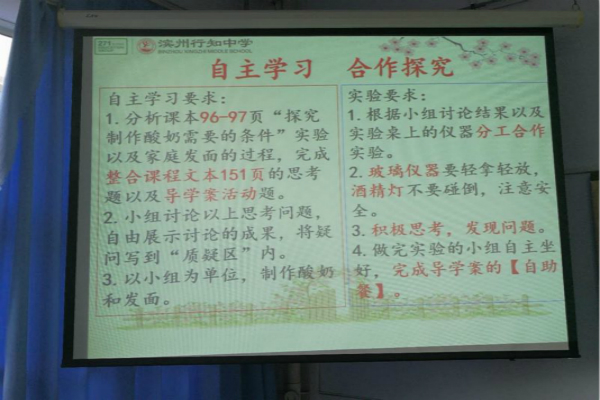 滨州行知中学
BINZHOU XINGZHI MIDDLE SCHOOL
自主学习 合作探究
自主学习要求：
1. 分析课本96-97页“探究
制作酸奶需要的条件”实验
以及家庭发面的过程，完成
整合课程文本151页的思考
题以及导学案活动题。
2. 小组讨论以上思考问题，
自由展示讨论的成果，将疑
问写到“质疑区”内。
3. 以小组为单位，制作酸奶
和发面。
实验要求：
1. 根据小组讨论结果以及
实验桌上的仪器分工合作
实验。
2. 玻璃仪器要轻拿轻放，
酒精灯不要碰倒，注意安
全。
3. 积极思考，发现问题。
4. 做完实验的小组自主坐
好，完成导学案的【自助
餐】。